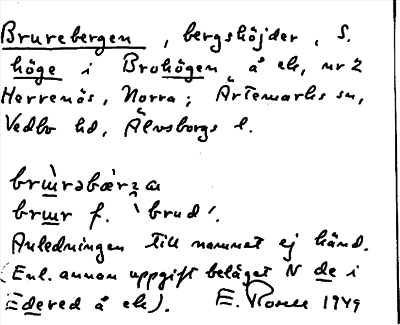 Brurebergen, bergshöjder, S.
höge i Brohögen å ek, nr 2
Herrenäs, Norra; Ärtemarks sn,
Vedbo hd, Älvsborgs l.
brɯ̀rəbæ̀rʒa
brɯr f. 'brud'.
Anledningen till namnet ej känd.
(Enl. annan uppgift beläget N de i
Edered å ek). E. 1949